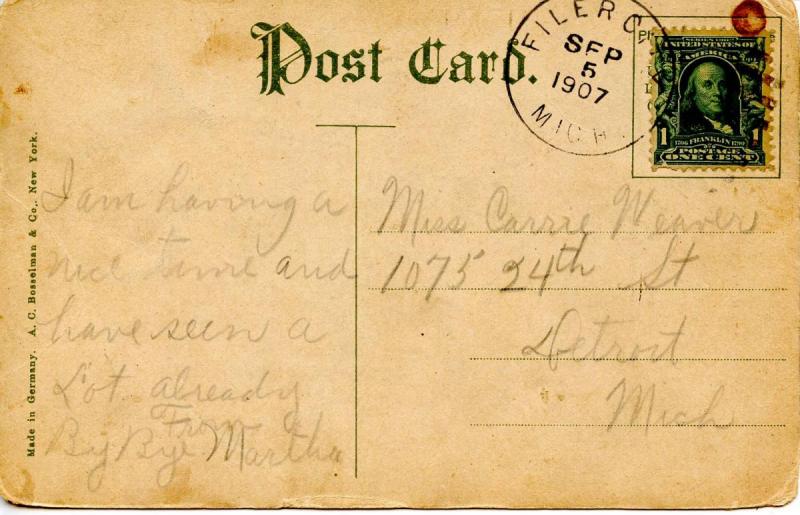 Post Card.
FILER CI
SEP
5
1907
MICH
SERIES 1902
UNITED STATES OF
AMERICA
1 1
1706 FRANKLIN 1790
POSTAGE
ONE CENT
I am having a
nice time and
have seen a
Lot already
From
By Bye Martha
Miss Carrie Weaver
1075 24th St
Detroit
Mich
Made in Germany. A. C. Bosselman & Co., New York.